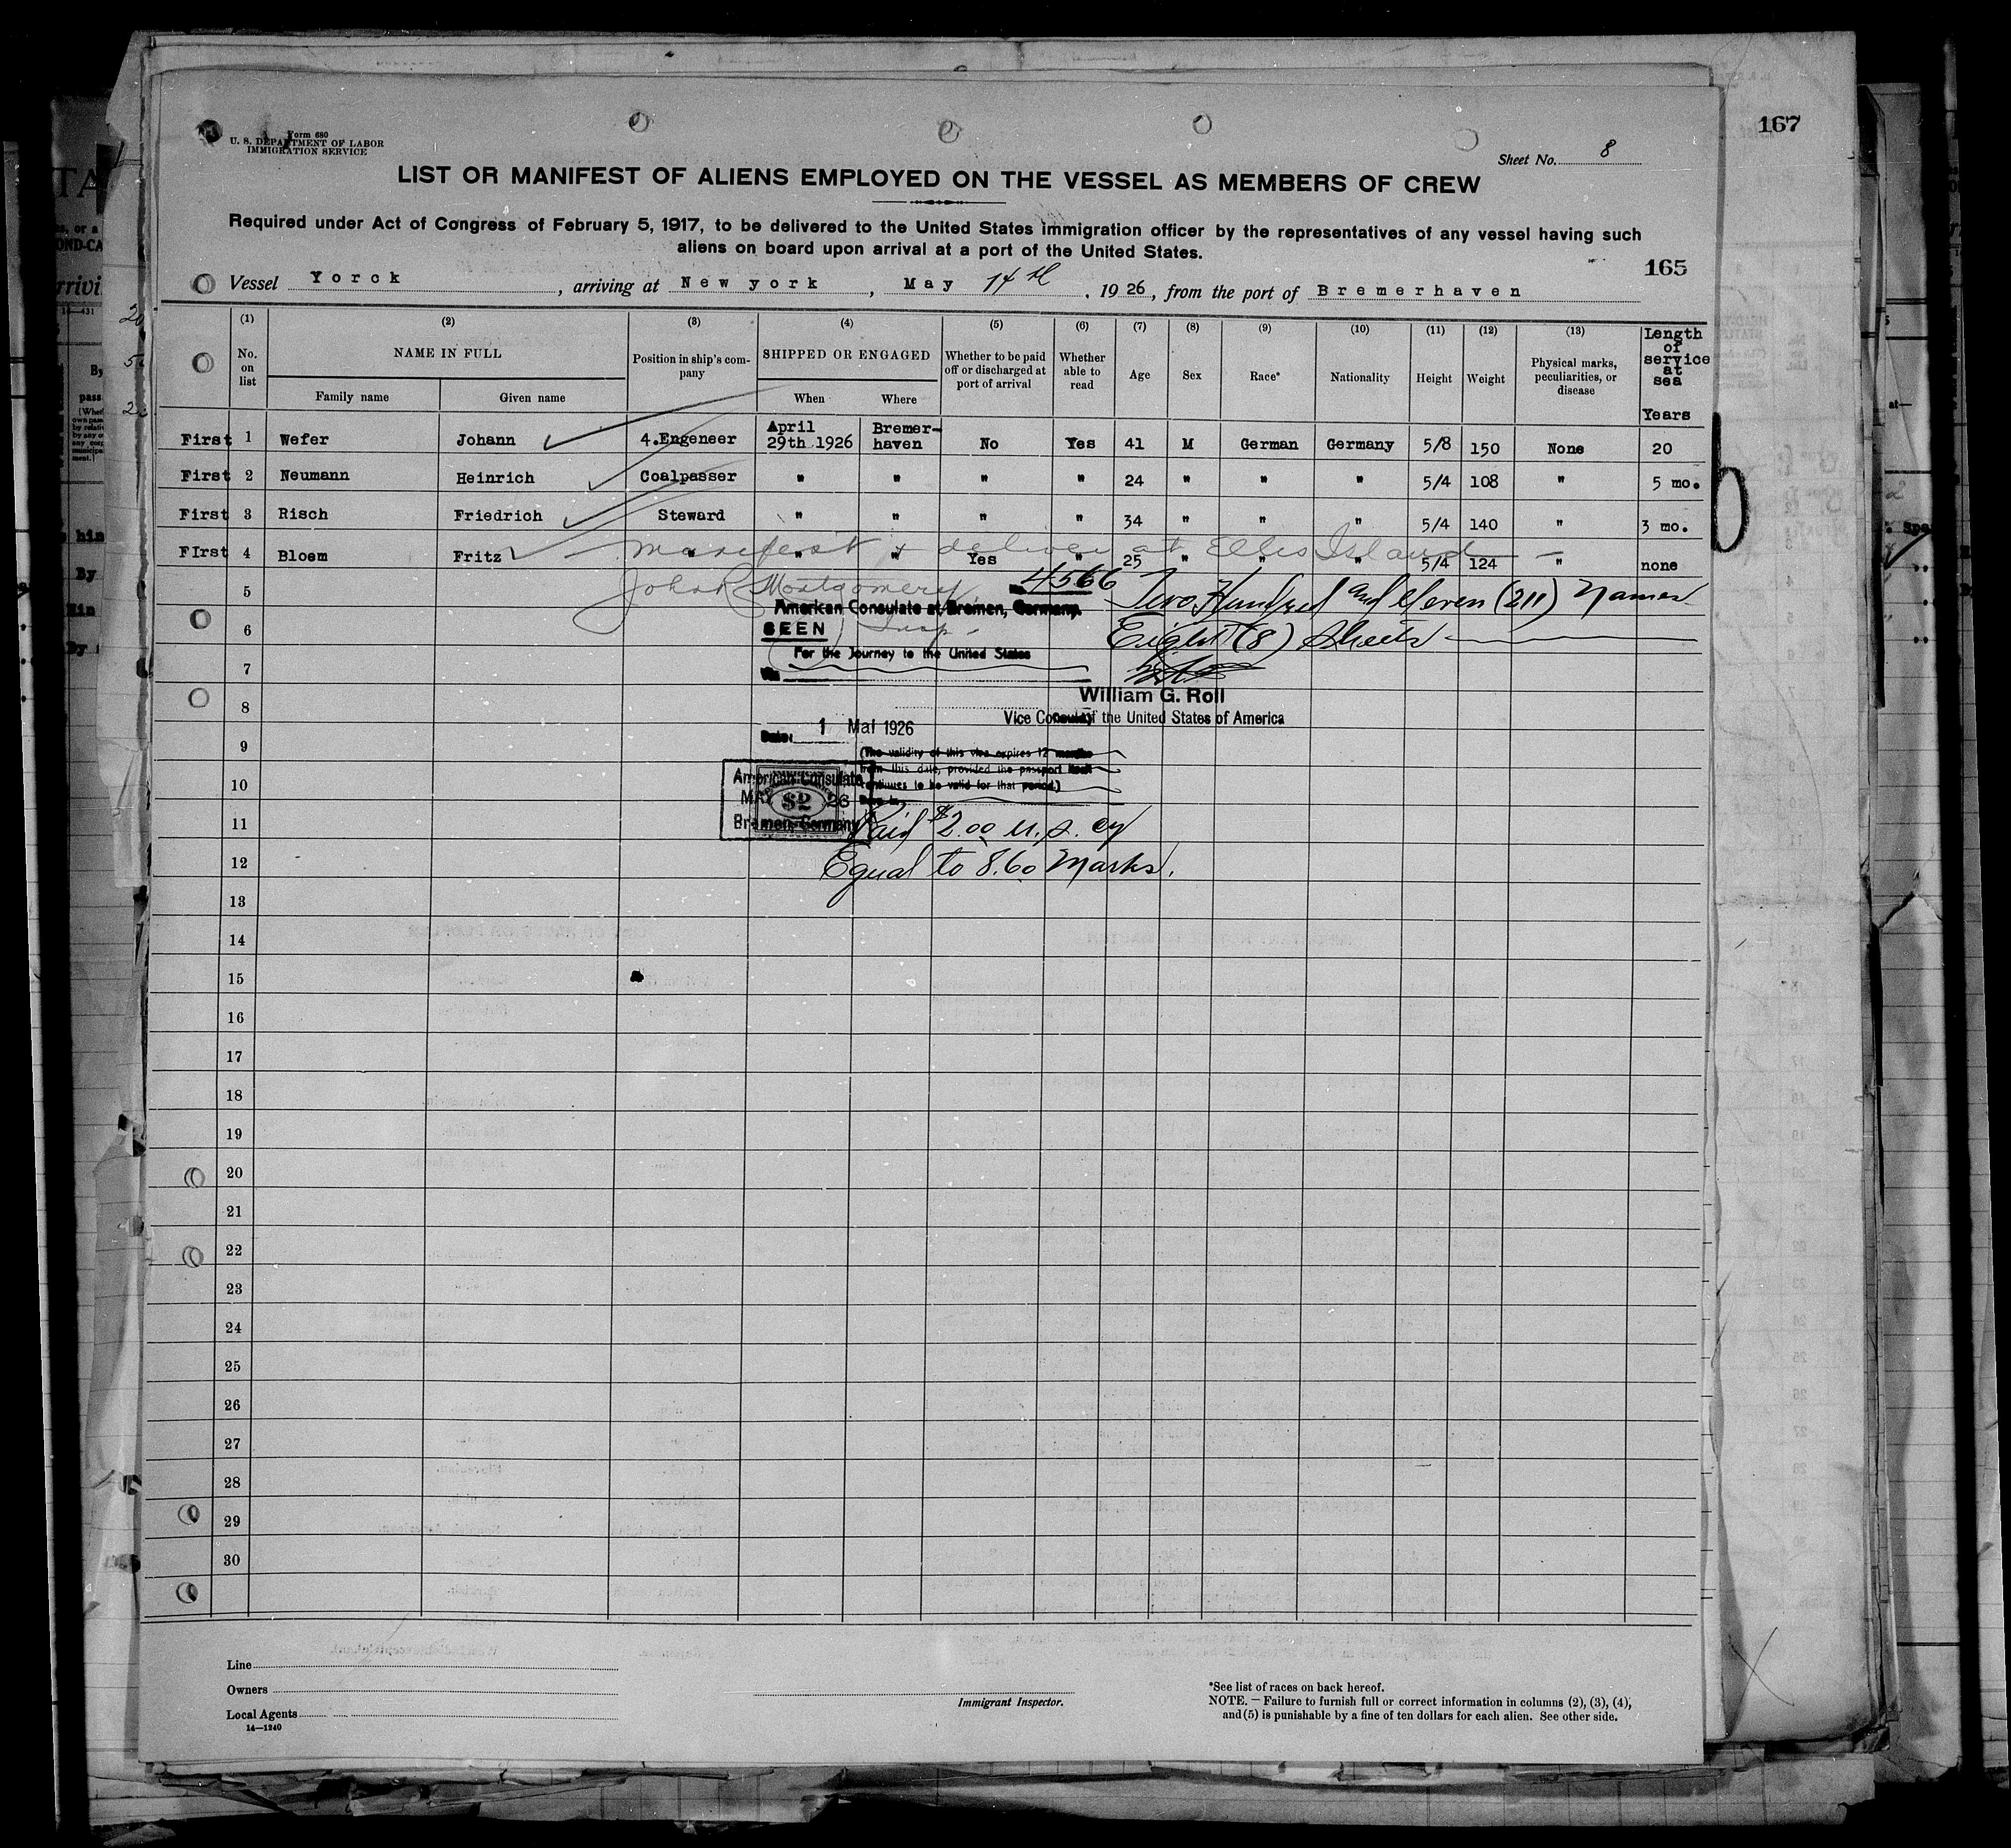 167
Form 680
U. S. DEPARTMENT OF LABOR
IMMIGRATION SERVICE
Sheet No. 8
LIST OR MANIFEST OF ALIENS EMPLOYED ON THE VESSEL AS MEMBERS OF CREW
Required under Act of Congress of February 5, 1917, to be delivered to the United States immigration officer by the representatives of any vessel having such
aliens on board upon arrival at a port of the United States.
165
Vessel Yorck, arriving at New york, May 14th, 1926, from the port of Bremerhaven
(1) (2) (3) (4) (5) (6) (7) (8) (9) (10) (11) (12) (13)
No. on list NAME IN FULL Position in ship's company SHIPPED OR ENGAGED Whether to be paid off or discharged at port of arrival Whether able to read Age Sex Race* Nationality Height Weight Physical marks, peculiarities, or disease Length of service at sea
Family name Given name When Where Years
First 1 Wefer Johann 4.Engeneer April 29th 1926 Bremer-haven No Yes 41 M German Germany 5/8 150 None 20
First 2 Neumann Heinrich Coalpasser " " " " 24 " " " 5/4 108 " 5 mo.
First 3 Risch Friedrich Steward " " " " 34 " " " 5/4 140 " 3 mo.
FIrst 4 Bloem Fritz " " " Yes " 25 " " " 5/4 124 " none
manifest & deliver at Ellis Island
5 John R Montgomery 4566 Two Hundred and Eleven (211) Names
American Consulate at Bremen, Germany.
6 SEEN Insp. Eight (8) Sheets
For the Journey to the United States
7
William G. Roll
8
Vice Consul of the United States of America
Date: 1 Mai 1926
9
(The validity of this visa expires 12 months
from this date, provided the passport itself
continues to be valid for that period.)
10
American Consulate
MAY 26
$2
Bremen, Germany
11 Paid $2.00 U.S. cy
12 Equal to 8.60 Marks.
13
14
15
16
17
18
19
20
21
22
23
24
25
26
27
28
29
30
Line
Owners
Local Agents
14—1240
Immigrant Inspector.
*See list of races on back hereof.
NOTE.—Failure to furnish full or correct information in columns (2), (3), (4),
and (5) is punishable by a fine of ten dollars for each alien. See other side.